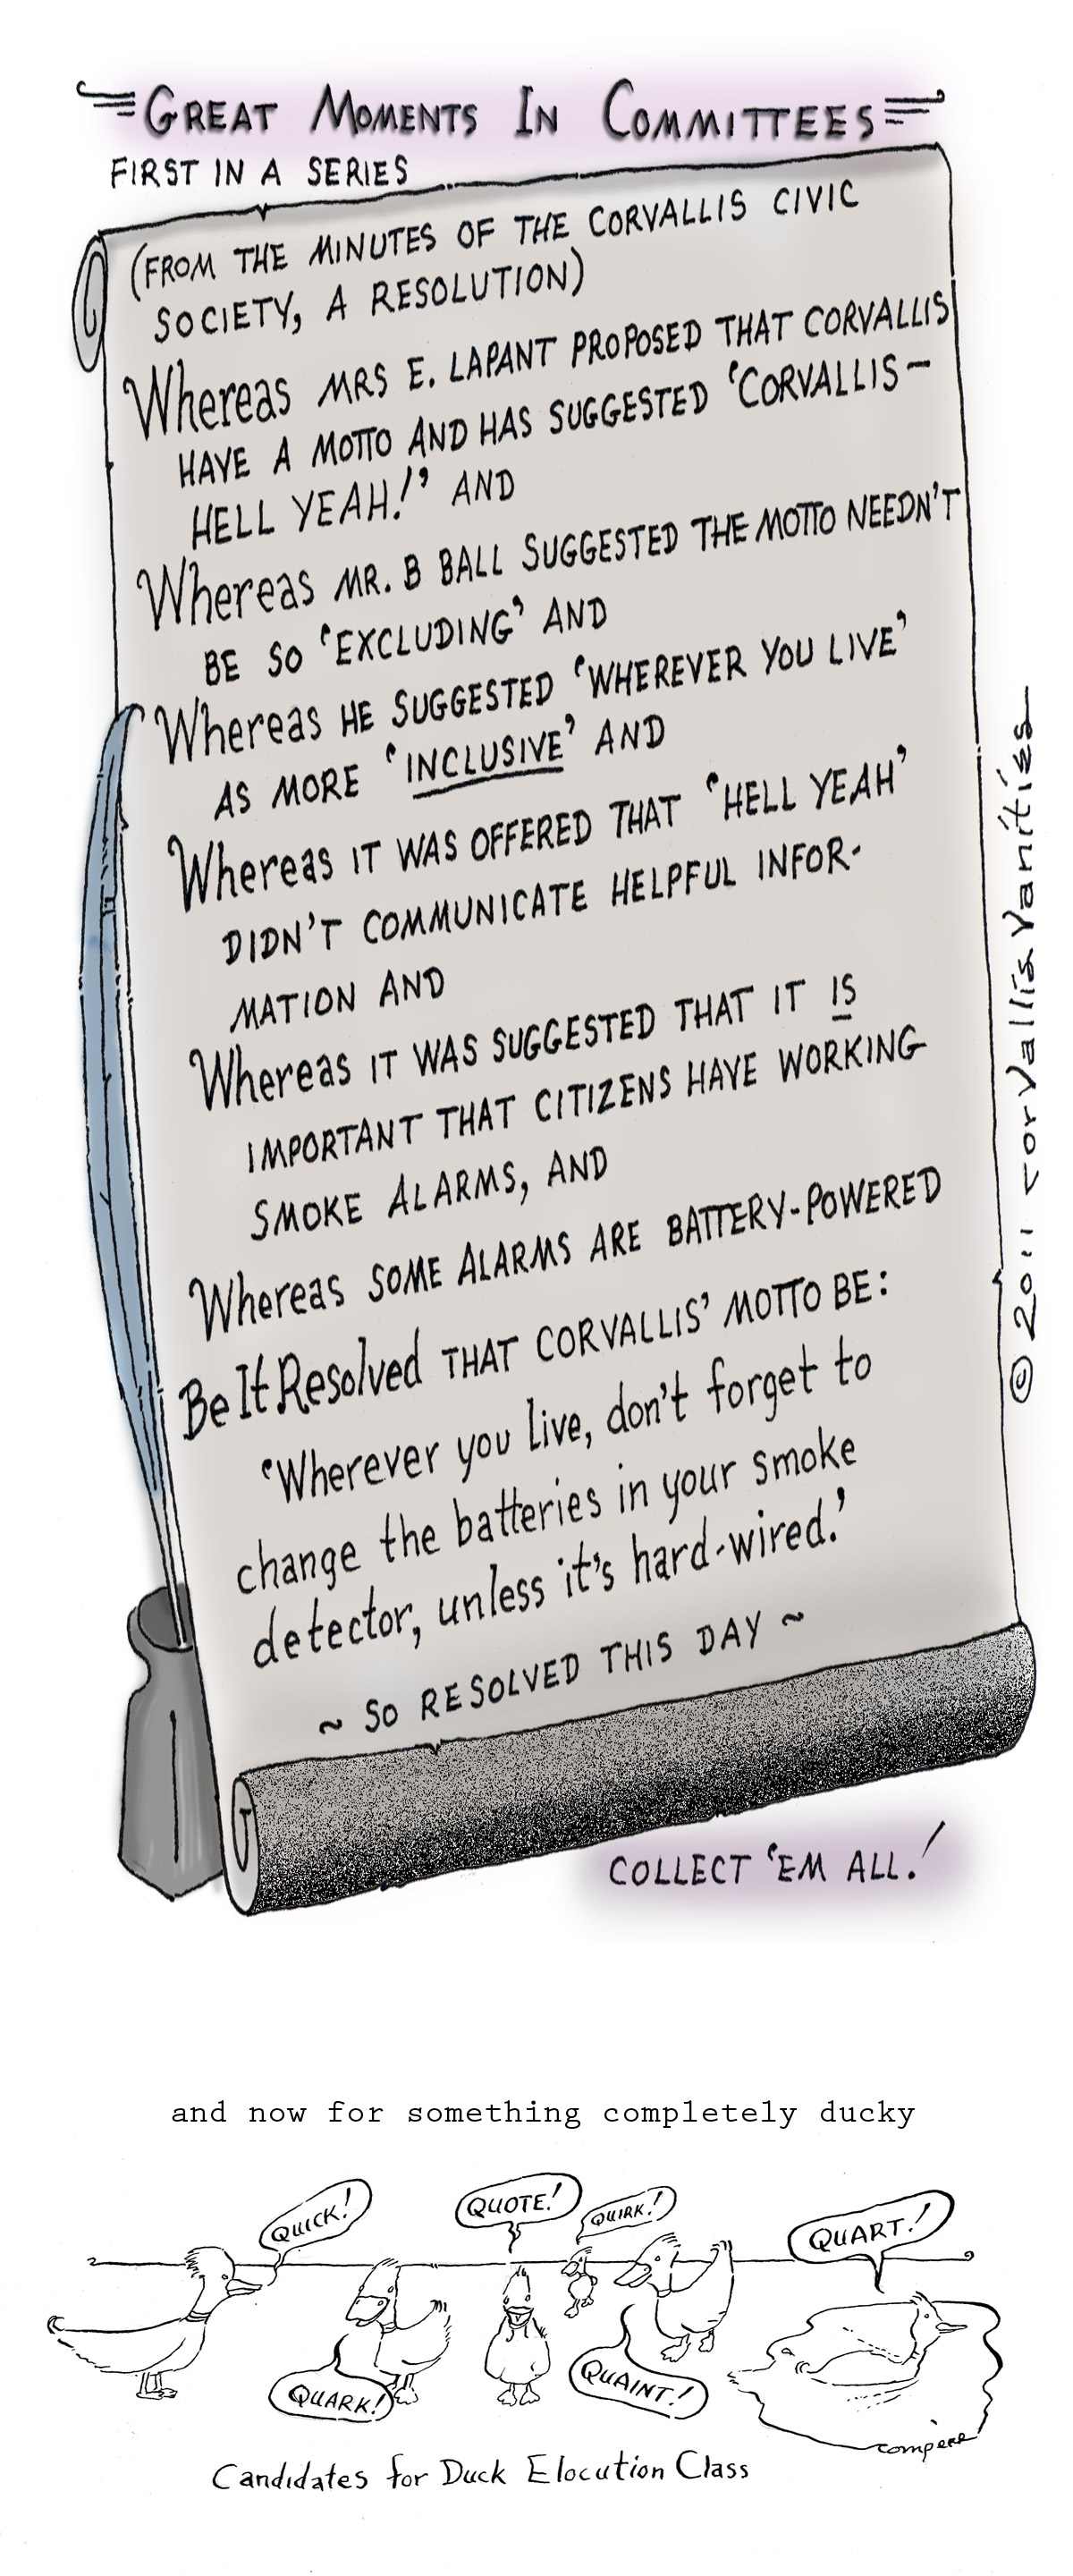 GREAT MOMENTS IN COMMITTEES
FIRST IN A SERIES
(FROM THE MINUTES OF THE CORVALLIS CIVIC
SOCIETY, A RESOLUTION)
Whereas MRS E. LAPANT PROPOSED THAT CORVALLIS
HAVE A MOTTO AND HAS SUGGESTED 'CORVALLIS—
HELL YEAH!' AND
Whereas MR. B BALL SUGGESTED THE MOTTO NEEDN'T
BE SO 'EXCLUDING' AND
Whereas HE SUGGESTED 'WHEREVER YOU LIVE'
AS MORE 'INCLUSIVE' AND
Whereas IT WAS OFFERED THAT 'HELL YEAH'
DIDN'T COMMUNICATE HELPFUL INFOR-
MATION AND
Whereas IT WAS SUGGESTED THAT IT IS
IMPORTANT THAT CITIZENS HAVE WORKING
SMOKE ALARMS, AND
Whereas SOME ALARMS ARE BATTERY-POWERED
Be It Resolved THAT CORVALLIS' MOTTO BE:
'Wherever you live, don't forget to
change the batteries in your smoke
detector, unless it's hard-wired.'
~ SO RESOLVED THIS DAY ~
© 2011 corvallis vanities
COLLECT 'EM ALL!
and now for something completely ducky
QUICK!
QUOTE!
QUIRK!
QUART!
QUARK!
QUAINT!
compère
Candidates for Duck Elocution Class